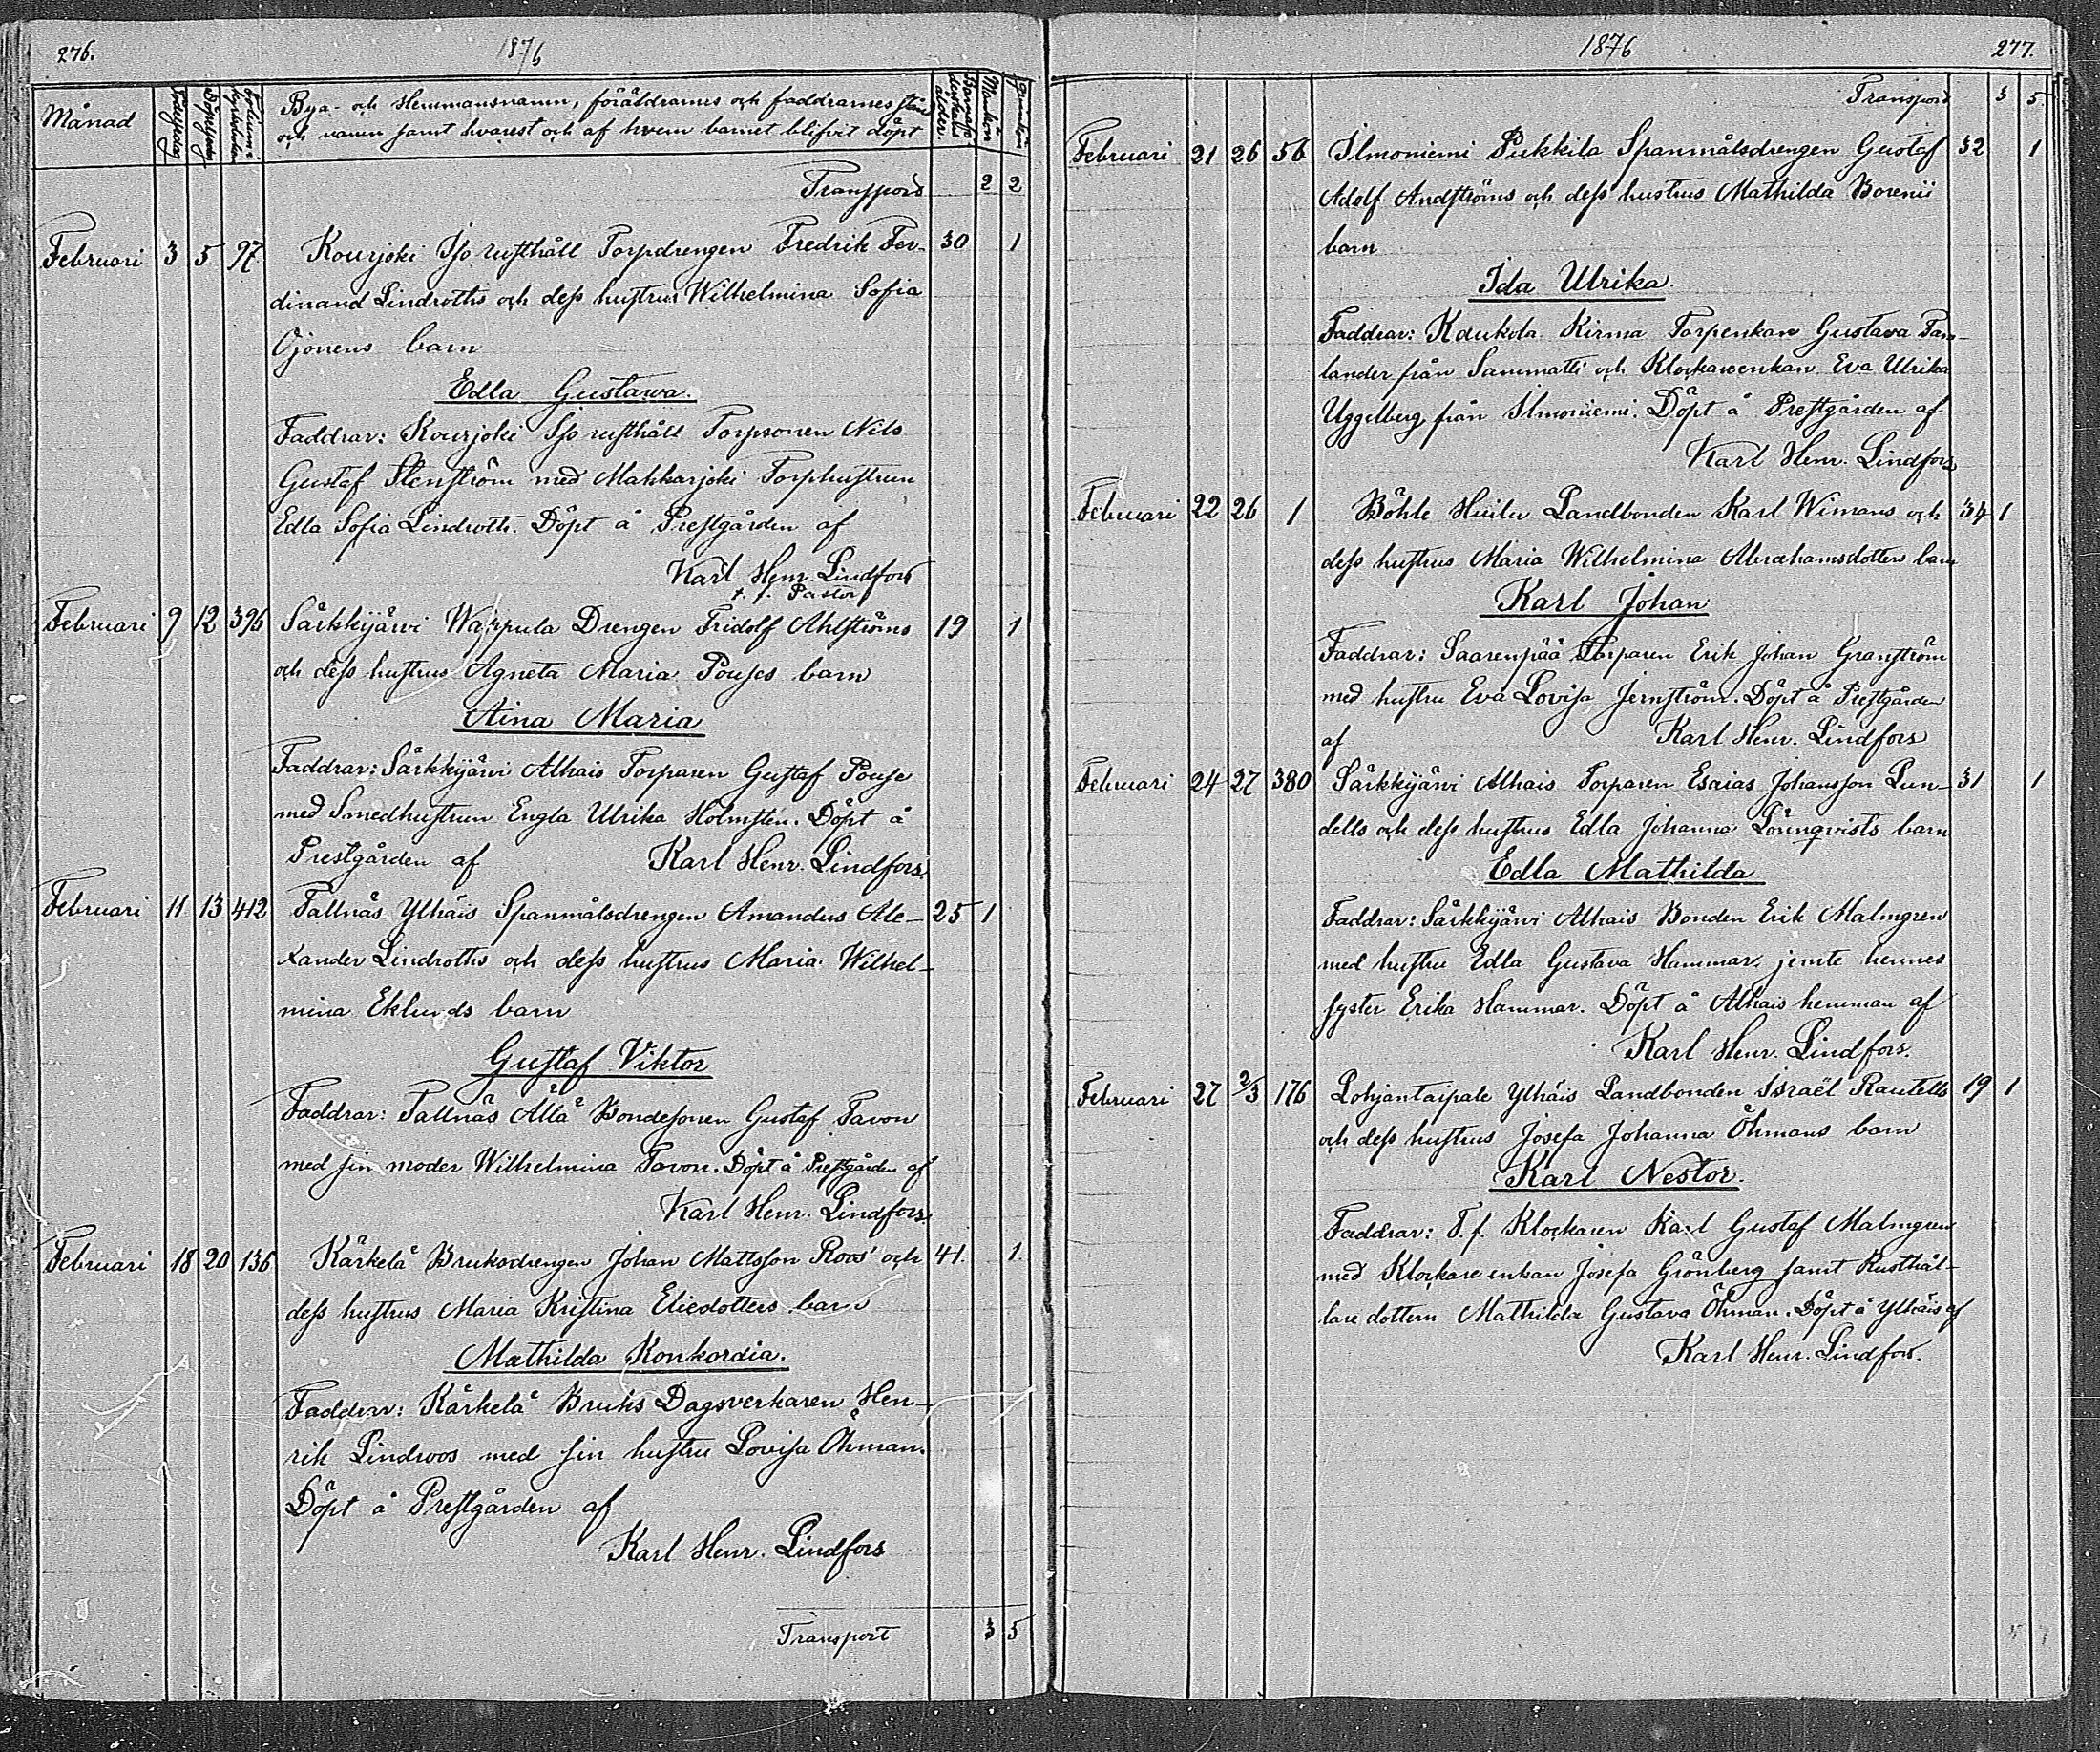 276.
1876
Månad
Födelsedag
Döpelsedag
Folium i kyrkoboken
Bya- och Hemmansnamn, föräldrarnes och faddrarnes stånd
och namn samt hvarest och af hvem barnet blifvit döpt
ålder.
Mankön
Qvinkön
Transport 2 2
Februari 3 5 97 Kourjoki Iso rusthåll Torpdrengen Fredrik Fer- 30 1
dinand Lindroths och dess hustrus Wilhelmina Sofia
Ojonens barn
Edla Gustawa.
Faddrar: Kourjoki Iso rusthåll Torpsonen Nils
Gustaf Stenström med Makkarjoki Torphustrun
Edla Sofia Lindroth. Döpt å Prestgården af
Karl Henr. Lindfors
t. f. Pastor
Februari 9 12 396 Särkkijärvi Wappula Drengen Fridolf Ahlströms 19 1
och dess hustrus Agneta Maria Pouses barn
Aina Maria
Faddrar: Särkkijärvi Alhais Torparen Gustaf Pouse
med Smedhustrun Engla Ulrika Holmsten. Döpt å
Prestgården af Karl Henr. Lindfors.
Februari 11 13 412 Tallnäs Ylhäis Spanmålsdrengen Amandus Ale- 25 1
xander Lindroths och dess hustrus Maria Wilhel-
mina Eklunds barn
Gustaf Viktor
Faddrar: Tallnäs Ålå Bondesonen Gustaf Tavon
med sin moder Wilhelmina Tavon. Döpt å Prestgården af
Karl Henr. Lindfors.
Februari 18 20 136 Kärkelä Bruksdrengen Johan Mattsson Roos' och 41. 1.
dess hustrus Maria Kristina Eliedotters barn
Mathilda Konkordia.
Faddrar: Kärkelä Bruks Dagsverkaren Hen-
rik Lindroos med sin hustru Lovisa Öhman.
Döpt å Prestgården af
Karl Henr. Lindfors
Transport 3 5
1876
277.
Transport 3 5.
Februari 21 26 56 Ilmoniemi Pukkila Spanmålsdrengen Gustaf 32 1
Adolf Andströms och dess hustrus Mathilda Borenii
barn
Ida Ulrika.
Faddrar: Koukola Kirma Torpenkan Gustava Tam-
lander från Sammatti och Klockareenkan Eva Ulrika
Uggelberg från Ilmoniemi. Döpt å Prestgården af
Karl Henr. Lindfors
Februari 22 26 1 Böhle Huilu Landbonden Karl Wimans och 34 1
dess hustrus Maria Wilhelmina Abrahamsdotters barn
Karl Johan
Faddrar: Saarenpää Torparen Erik Johan Granström
med hustru Eva Lovisa Jernström. Döpt å Prestgården
af Karl Henr. Lindfors
Februari 24 27 380 Särkkijärvi Alhais Torparen Esaias Johansson Lun- 31 1
dells och dess hustrus Edla Johanna Lönnqvists barn
Edla Mathilda
Faddrar: Särkkijärvi Alhais Bonden Erik Malmgren
med hustru Edla Gustava Hammar, jemte hennes
syster Erika Hammar. Döpt å Alhais hemman af
Karl Henr. Lindfors.
Februari 27 2/3 176 Lohjantaipale Ylhäis Landbonden Israël Rautells 19 1
och dess hustrus Josefa Johanna Öhmans barn
Karl Nestor.
Faddrar: T. f. Klockaren Karl Gustaf Malmgren
med Klockare enkan Josefa Grönberg samt Rusthål-
lare dottern Mathilda Gustava Öhman. Döpt å Ylhäis af
Karl Henr. Lindfors.